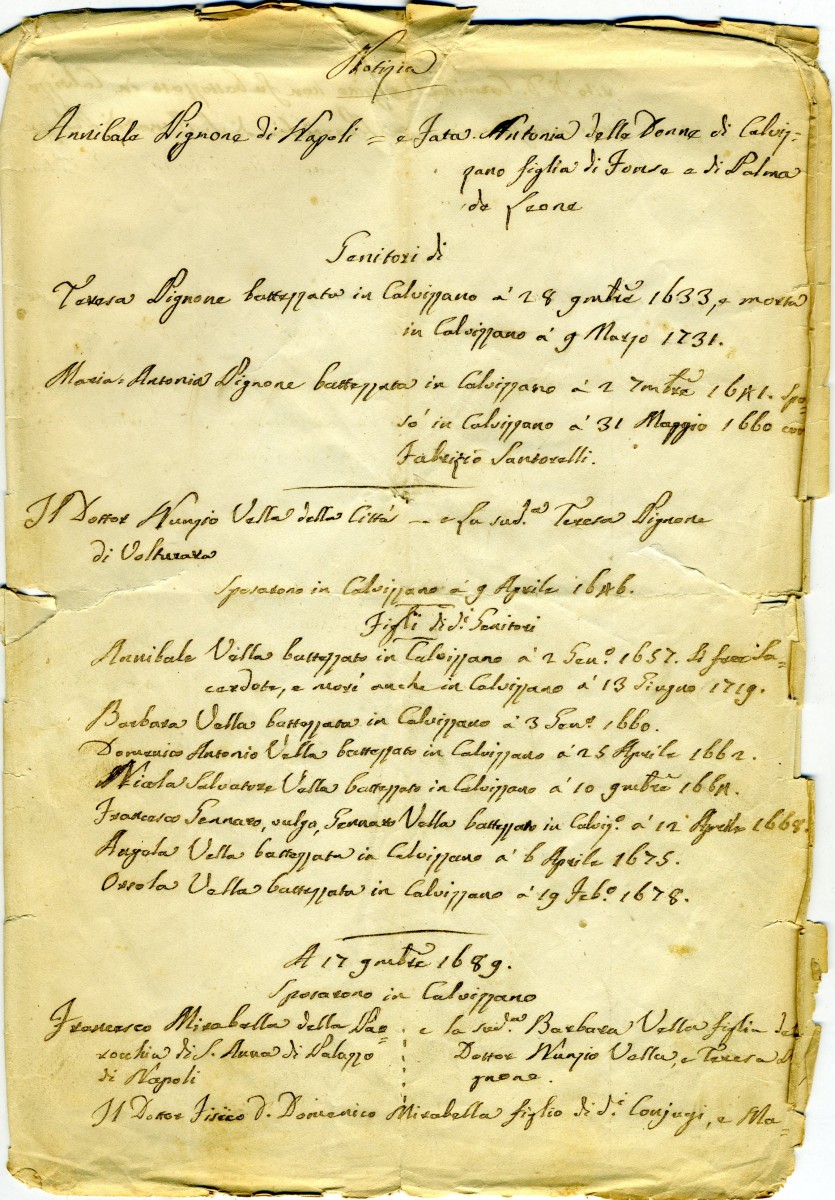 Notizia
Annibale Pignone di Napoli = e Fata Antonia delle Donne di Calviz-
zano figlia di Fonse e di Palma
de Leone
Genitori di
Teresa Pignone battezzata in Calvizzano à 28 9mbre 1633, e morta
in Calvizzano à 9 Marzo 1731.
Maria Antonia Pignone battezzata in Calvizzano à 2 7mbre 1641. Spo-
sò in Calvizzano à 31 Maggio 1660 con
Fabrizio Santorelli.
Il Dottor Nunzio Vella della Città — e la sud.a Teresa Pignone
di Volturara
Sposarono in Calvizzano à 9 Aprile 1646.
Figli di d.i Genitori
Annibale Vella battezzato in Calvizzano à 2 Gen.o 1657. Si fece Sa=
cerdote, e morì anche in Calvizzano à 13 Giugno 1719.
Barbara Vella battezzata in Calvizzano à 3 Gen.o 1660.
Domenico Antonio Vella battezzato in Calvizzano à 25 Aprile 1662.
Nicola Salvatore Vella battezzato in Calvizzano à 10 9mbre 1664.
Francesco Gennaro, vulgo, Gennaro Vella battezzato in Calviz.o à 12 Aprile 1668.
Angela Vella battezzata in Calvizzano à 6 Aprile 1675.
Orsola Vella battezzata in Calvizzano à 19 Feb.o 1678.
A 17 9mbre 1689.
Sposarono in Calvizzano
Francesco Mirabella della Par= e la sud.a Barbara Vella figlia del
rocchia di S. Anna di Palazzo Dottor Nunzio Vella, e Teresa Pi
di Napoli gnone.
Il Dottor Fisico D. Domenico Mirabella figlio di d.i Conjugi, e Ma-